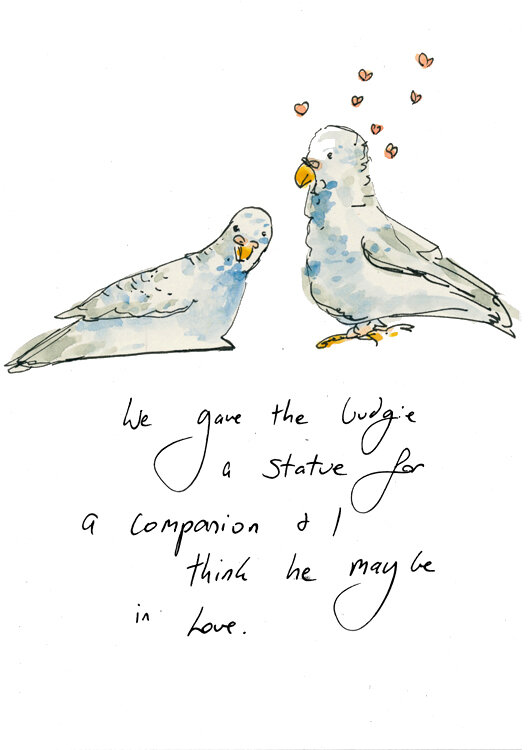 We gave the budgie
a statue for
a companion & I
think he may be
in Love.